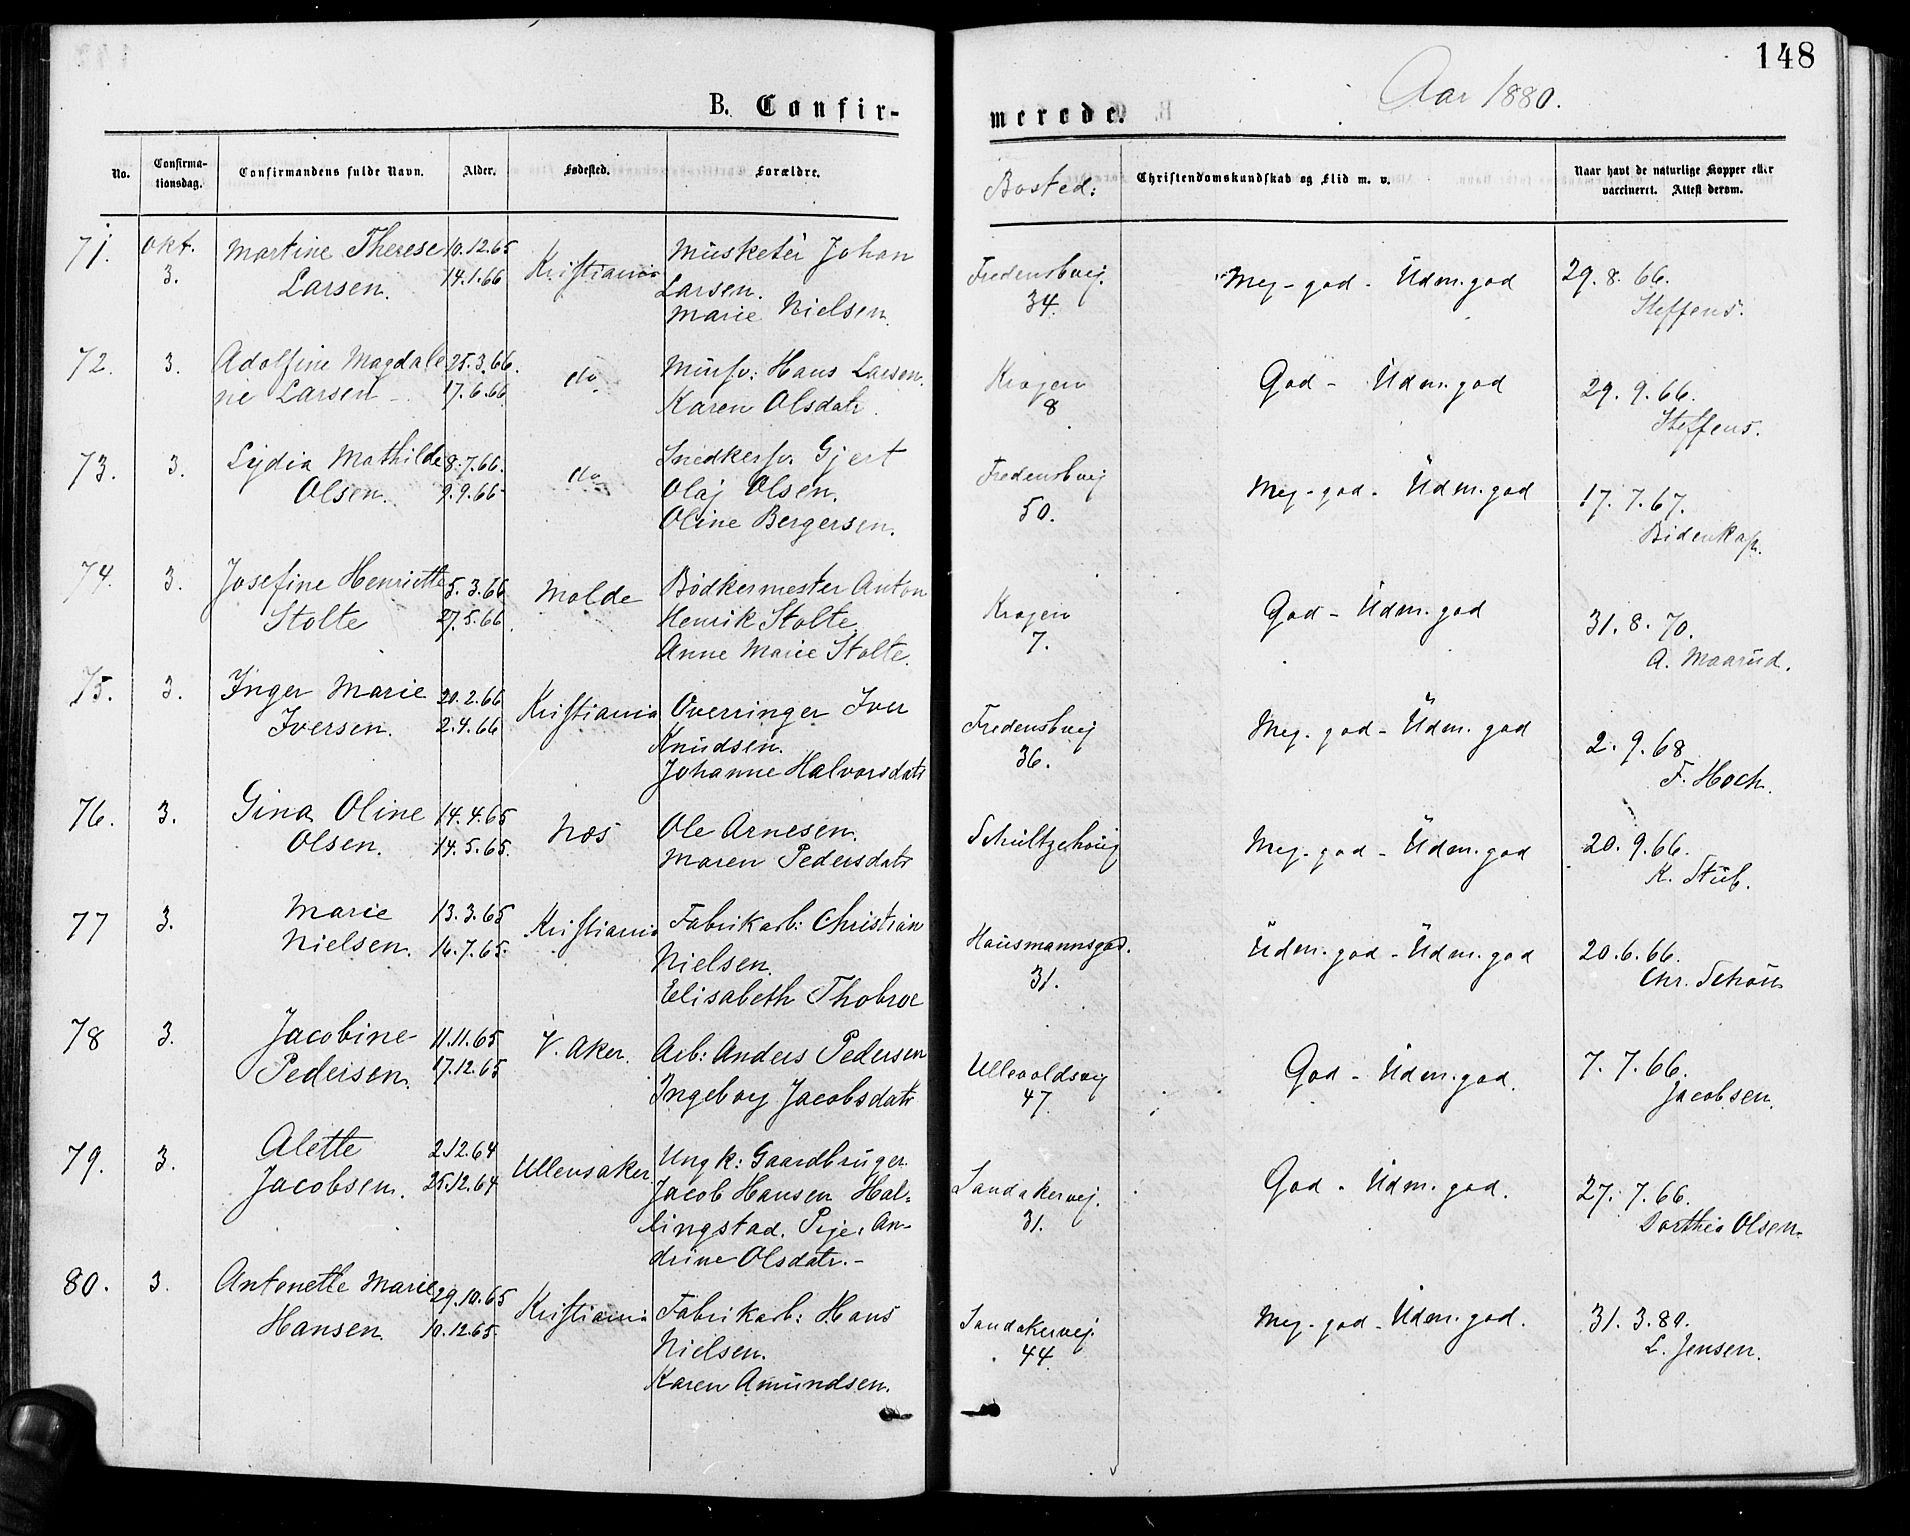 148
Aar 1880.
B. Confir-
merede.
No.
Confirma-
tionsdag.
Confirmandens fulde Navn.
Alder.
Fødested.
Forældre.
Bosted:
Christendomskundskab og Flid m. v.
Naar havt de naturlige Kopper eller
vaccineret. Attest derom.
71. Okt. Martine Therese 10.12.65 Kristiania Musketér Johan Fredensbvej. Meg-god - Udm.god 29.8.66.
3. Larsen. 14.1.66 Larsen. 34. Steffens.
Marie Nielsen.
72. 3. Adolfine Magdale 25.3.66. do Mursv: Hans Larsen. Krogen God - Udm.god 29.9.66.
ne Larsen - 17.6.66 Karen Olsdatr. 8 Steffens.
73. 3. Lydia Mathilde 8.7.66. do Snedkersv. Gjert Fredensbvej Meg-god. Udm.god 17.7.67.
Olsen. 9.9.66 Olaj Olsen. 50. Bidenkap.
Oline Bergersen.
74. 3. Josefine Henriette 5.3.66 Molde Bødkermester Anton Krogen God - Udm.god 31.8.70.
Stolte 27.5.66. Henrik Stolte. 7. A. Maarud.
Anne Marie Stolte.
75. 3. Inger Marie 20.2.66 Kristiania Overringer Iver Fredensbvej Meg.god - Udm.god 2.9.68
Iversen. 2.4.66 Knudsen. 36. F. Hoch.
Johanne Halvorsdatr
76. 3. Gina Oline 14.4.65 Næs Ole Arnesen. Schultzehaug Meg.god - Udm.god 20.9.66.
Olsen. 14.5.65. Maren Pedersdatr K. Stub.
77 3. Marie 13.3.65 Kristiania Fabrikarb: Christian Hausmannsgad. Udm.god - Udm.god 20.6.66.
Nielsen. 16.7.65. Nielsen. 31. Chr. Schou
Elisabeth Thobroe
78 3. Jacobine 11.11.65 V. Aker. Arb: Anders Pedersen Ullevoldsvej God - Udm.god. 7.7.66.
Pedersen. 17.12.65 Ingeborg Jacobsdatr 47. Jacobsen.
79. 3. Alette 2.12.64 Ullensaker Ungk: Gaardbruger Sandakervej. God - Udm.god. 27.7.66.
Jacobsen. 25.12.64 Jacob Hansen Hal- 31. Dorthea Olsen.
lingstad. Pige: An-
drine Olsdatr. -
80. 3. Antonette Marie 29.10.65 Kristiania Fabrikarb: Hans Sandakervej. Meg.god - Udm.god. 31.3.80.
Hansen. 10.12.65. Nielsen. 44. L. Jensen.
Karen Amundsen.